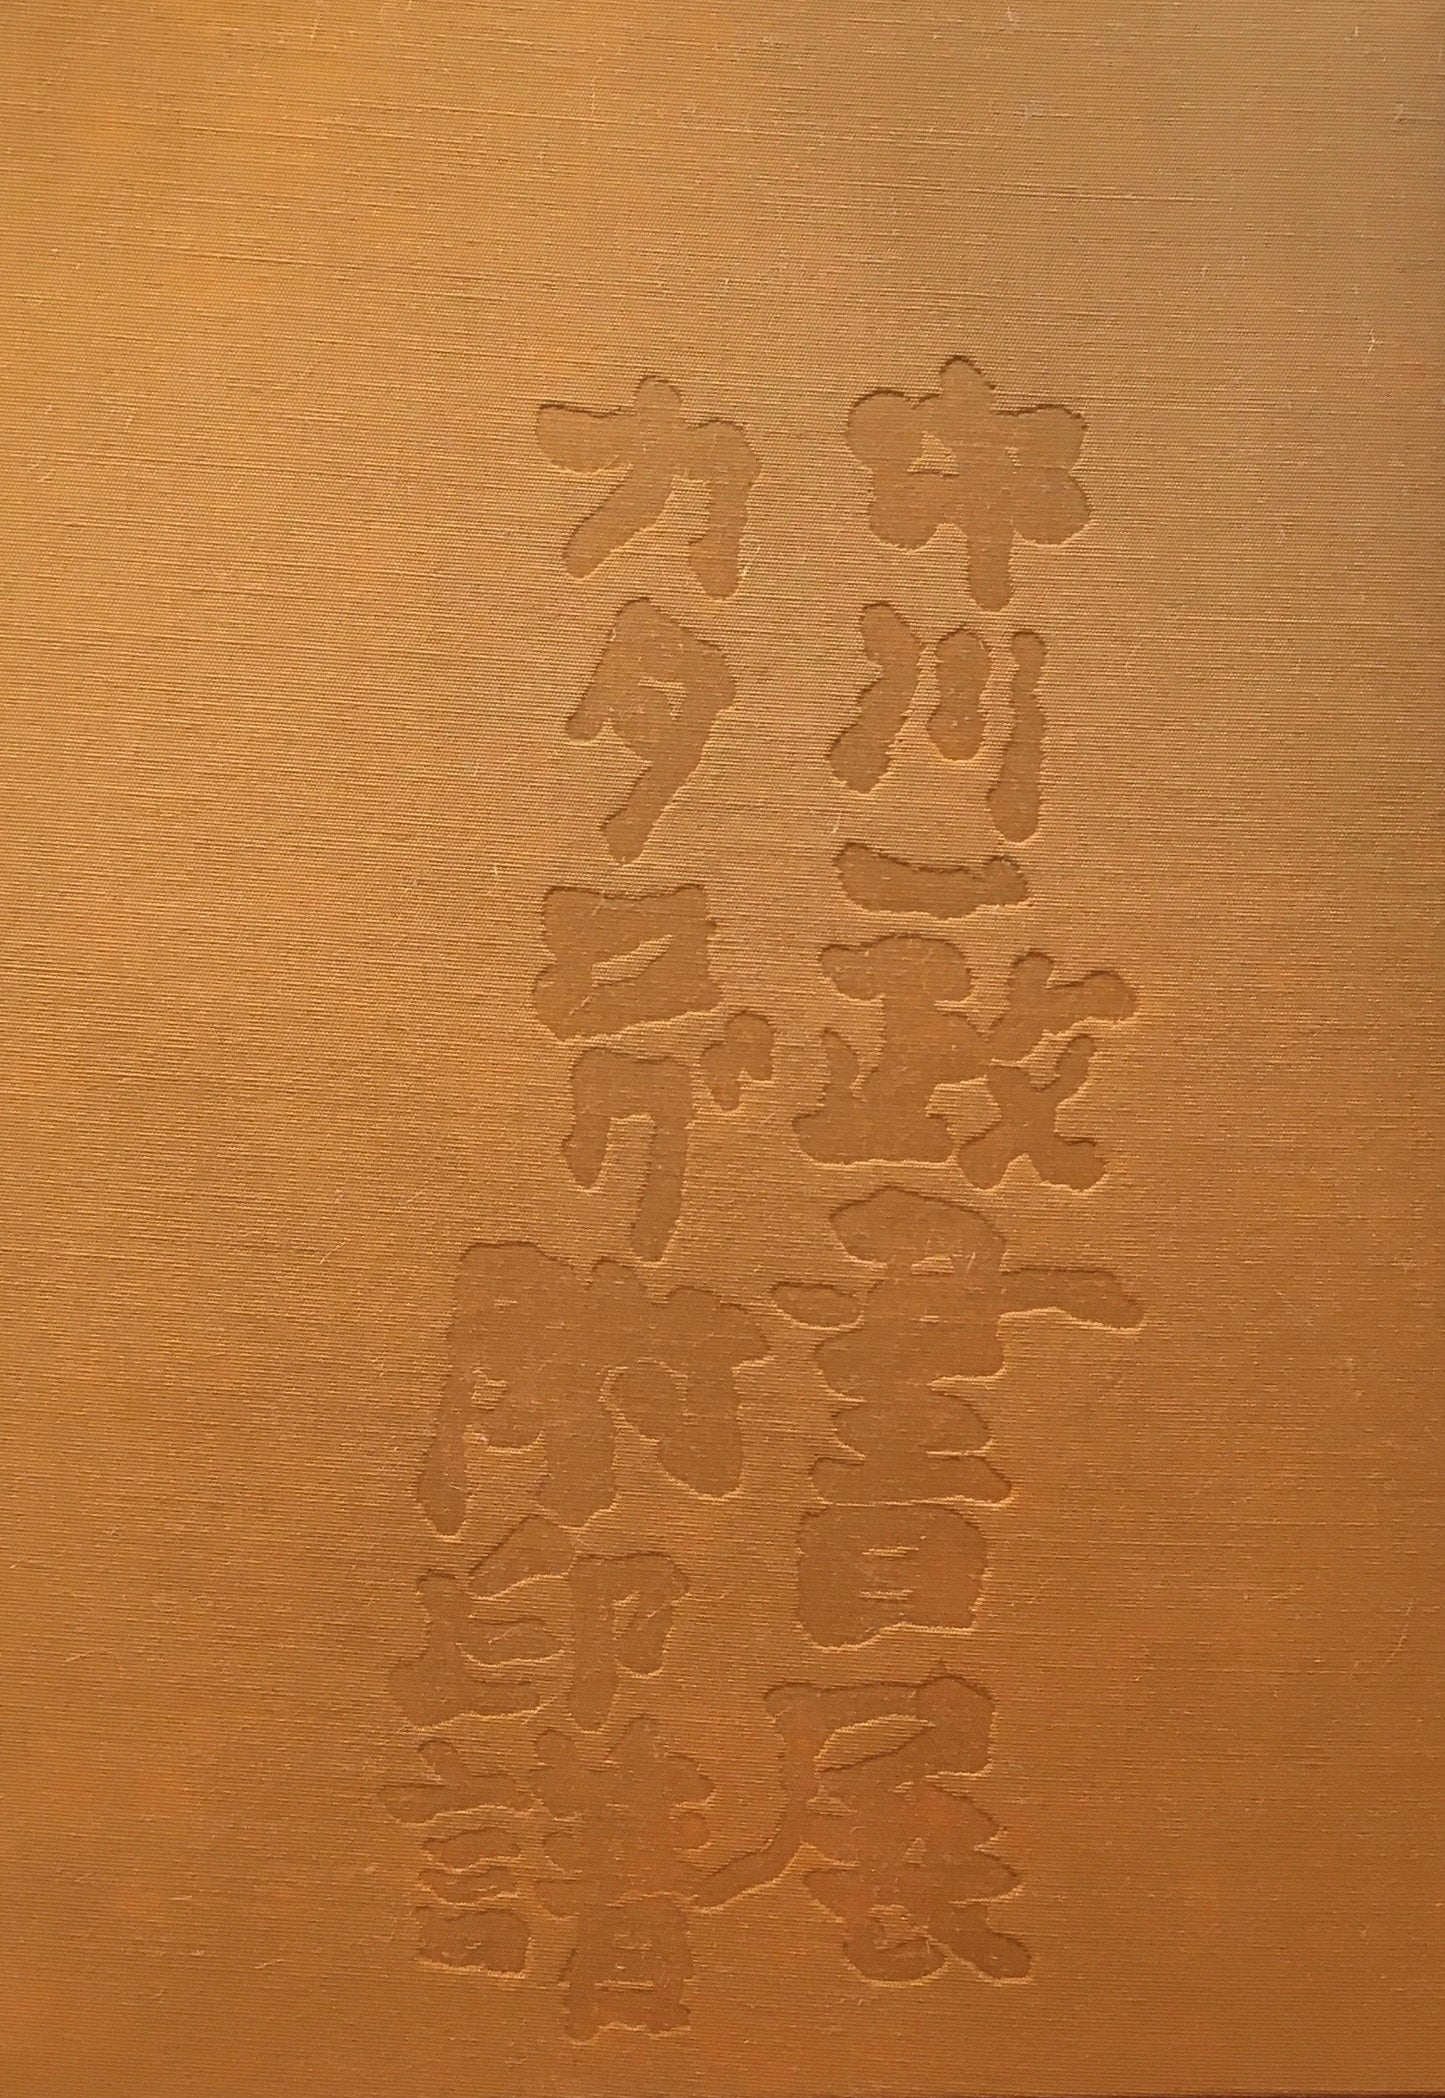 中川一政書展
カタログ附印譜